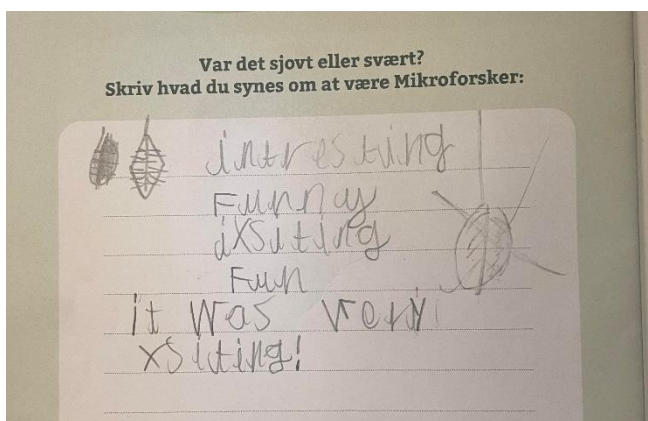 Var det sjovt eller svært?
Skriv hvad du synes om at være Mikroforsker:
intresting
Funny
ixsiting
Fun
it was very
xsiting!